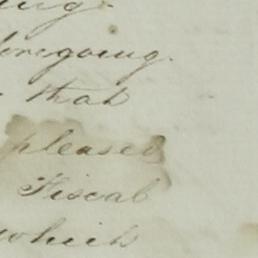 foregoing.
that
pleased
Fiscal
which